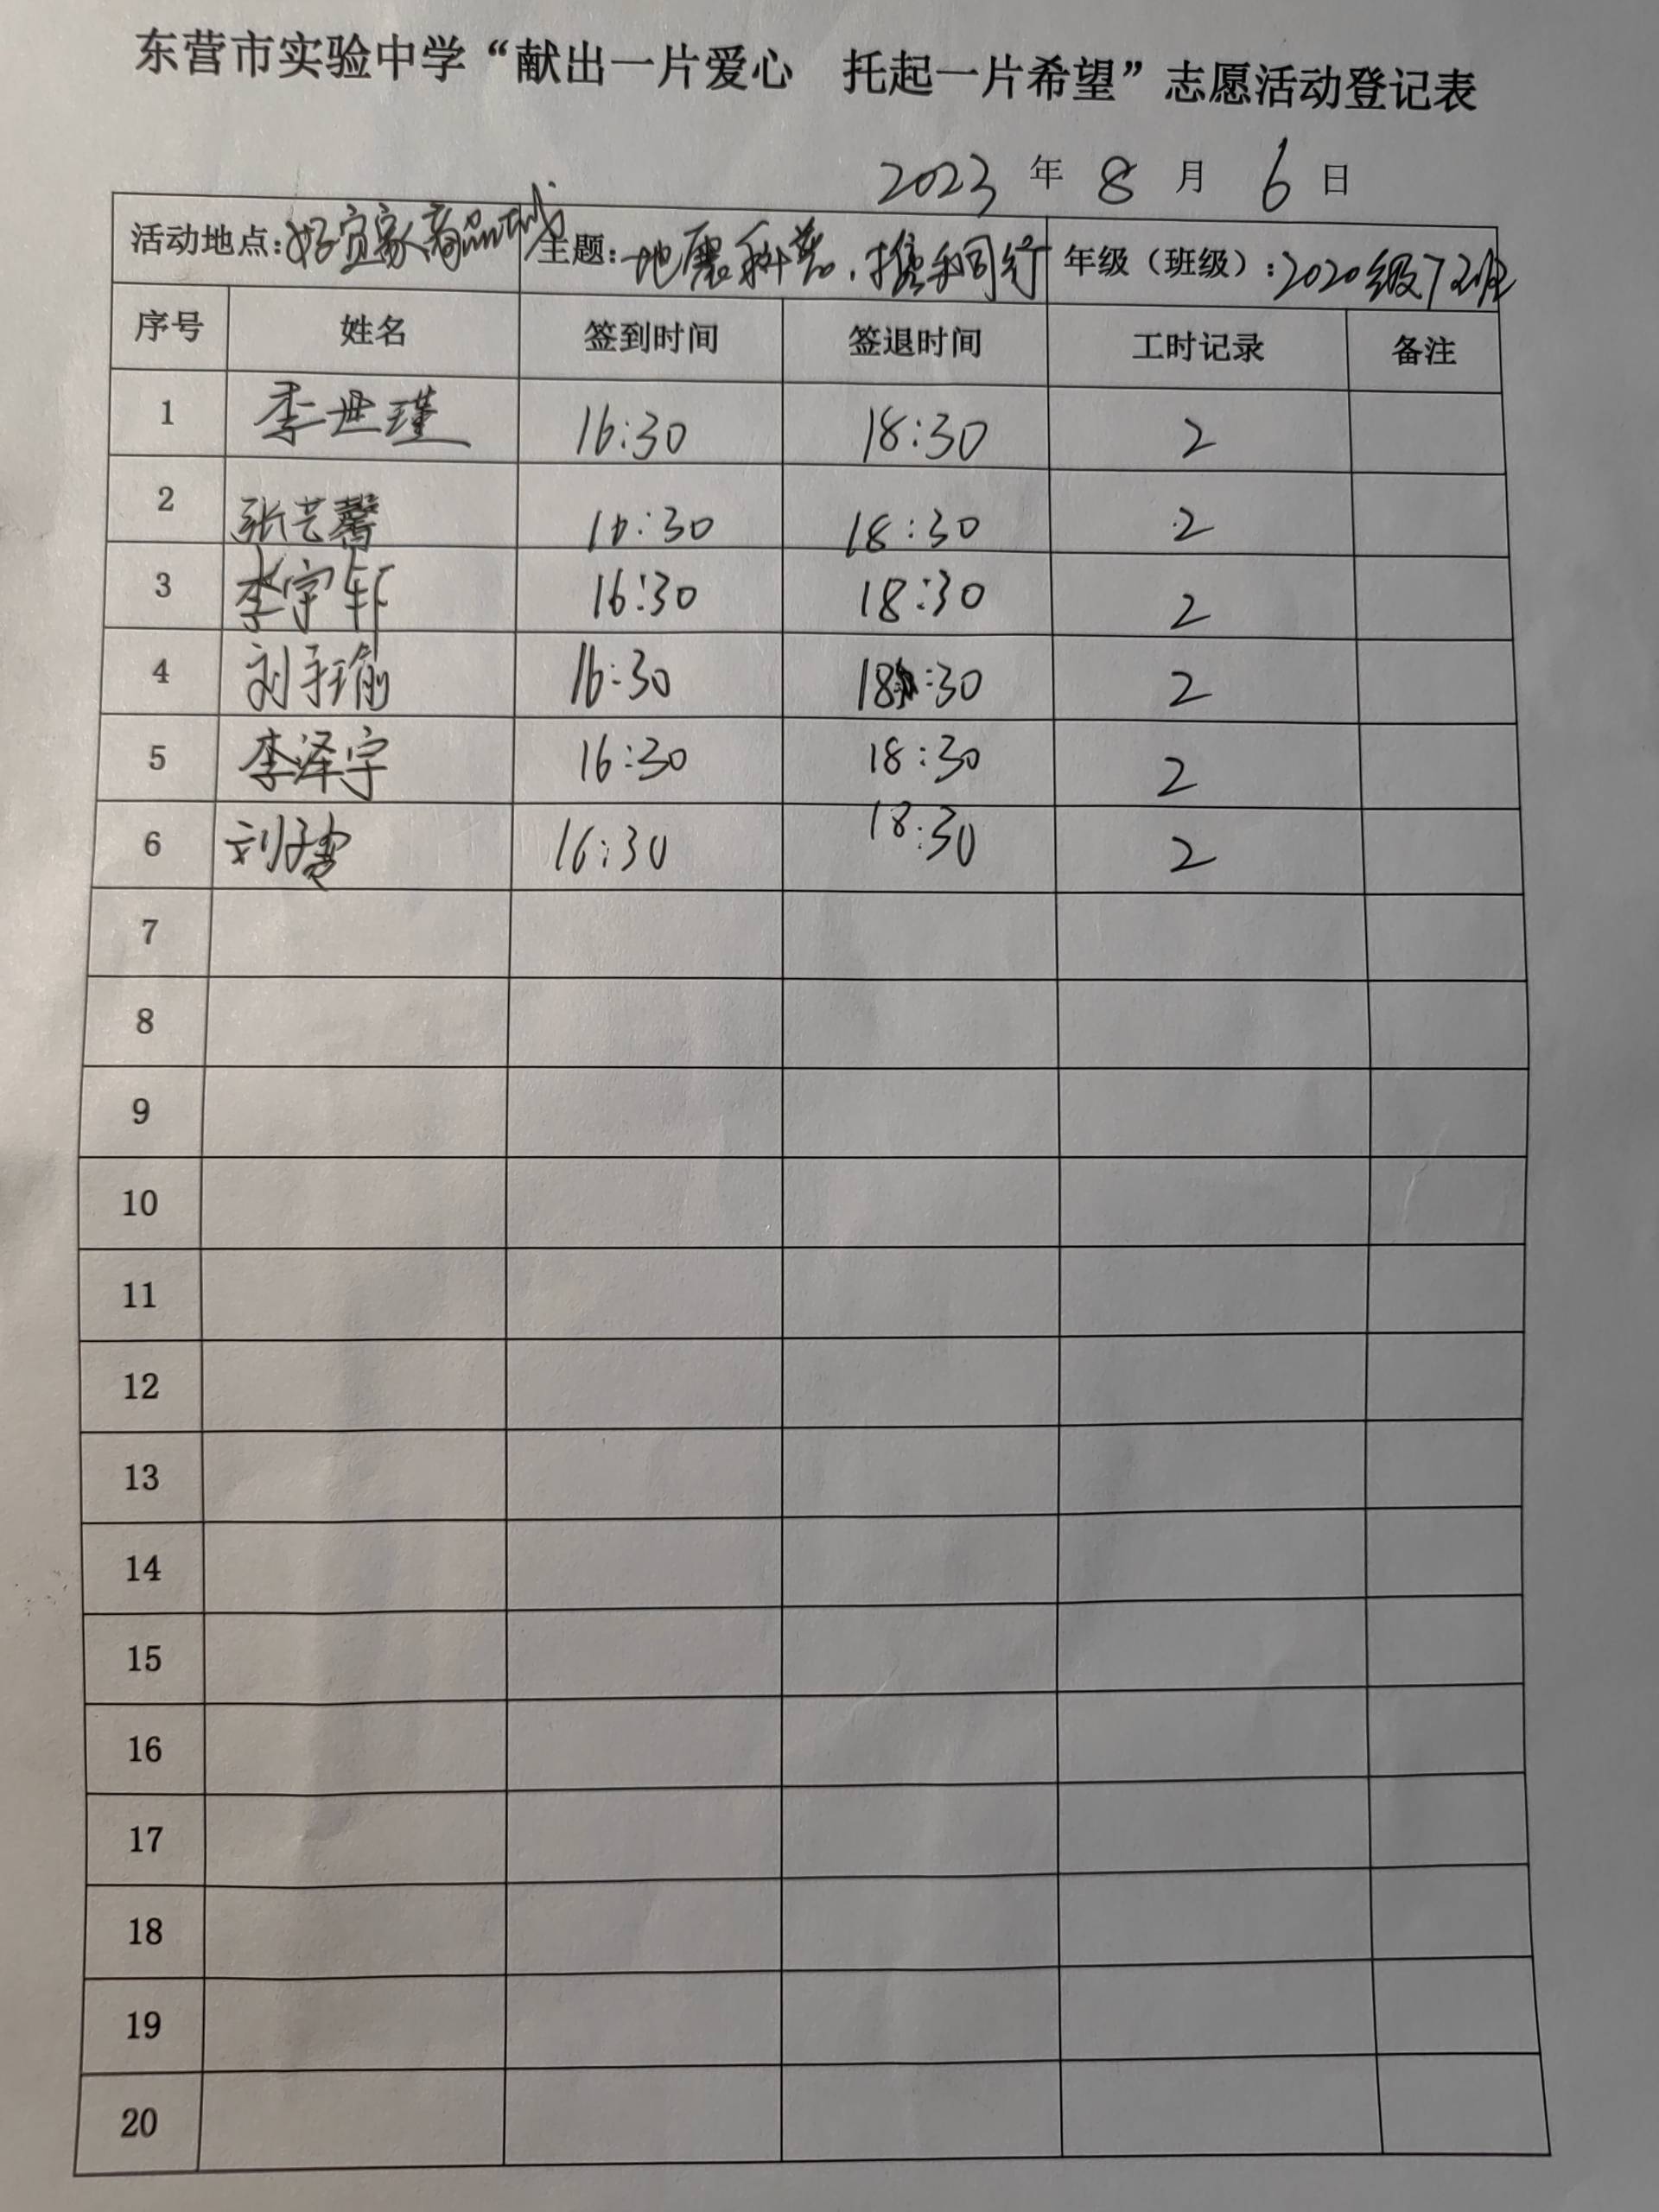 东营市实验中学“献出一片爱心 托起一片希望”志愿活动登记表
2023 年 8 月 6 日
活动地点:好宜家商品城 主题:地震科普,携手同行 年级(班级):2020级12班
序号 姓名 签到时间 签退时间 工时记录 备注
1 李世瑾 16:30 18:30 2
2 张艺馨 16:30 18:30 2
3 李宇轩 16:30 18:30 2
4 刘子瑜 16:30 18:30 2
5 李泽宇 16:30 18:30 2
6 刘子 16:30 18:30 2
7
8
9
10
11
12
13
14
15
16
17
18
19
20